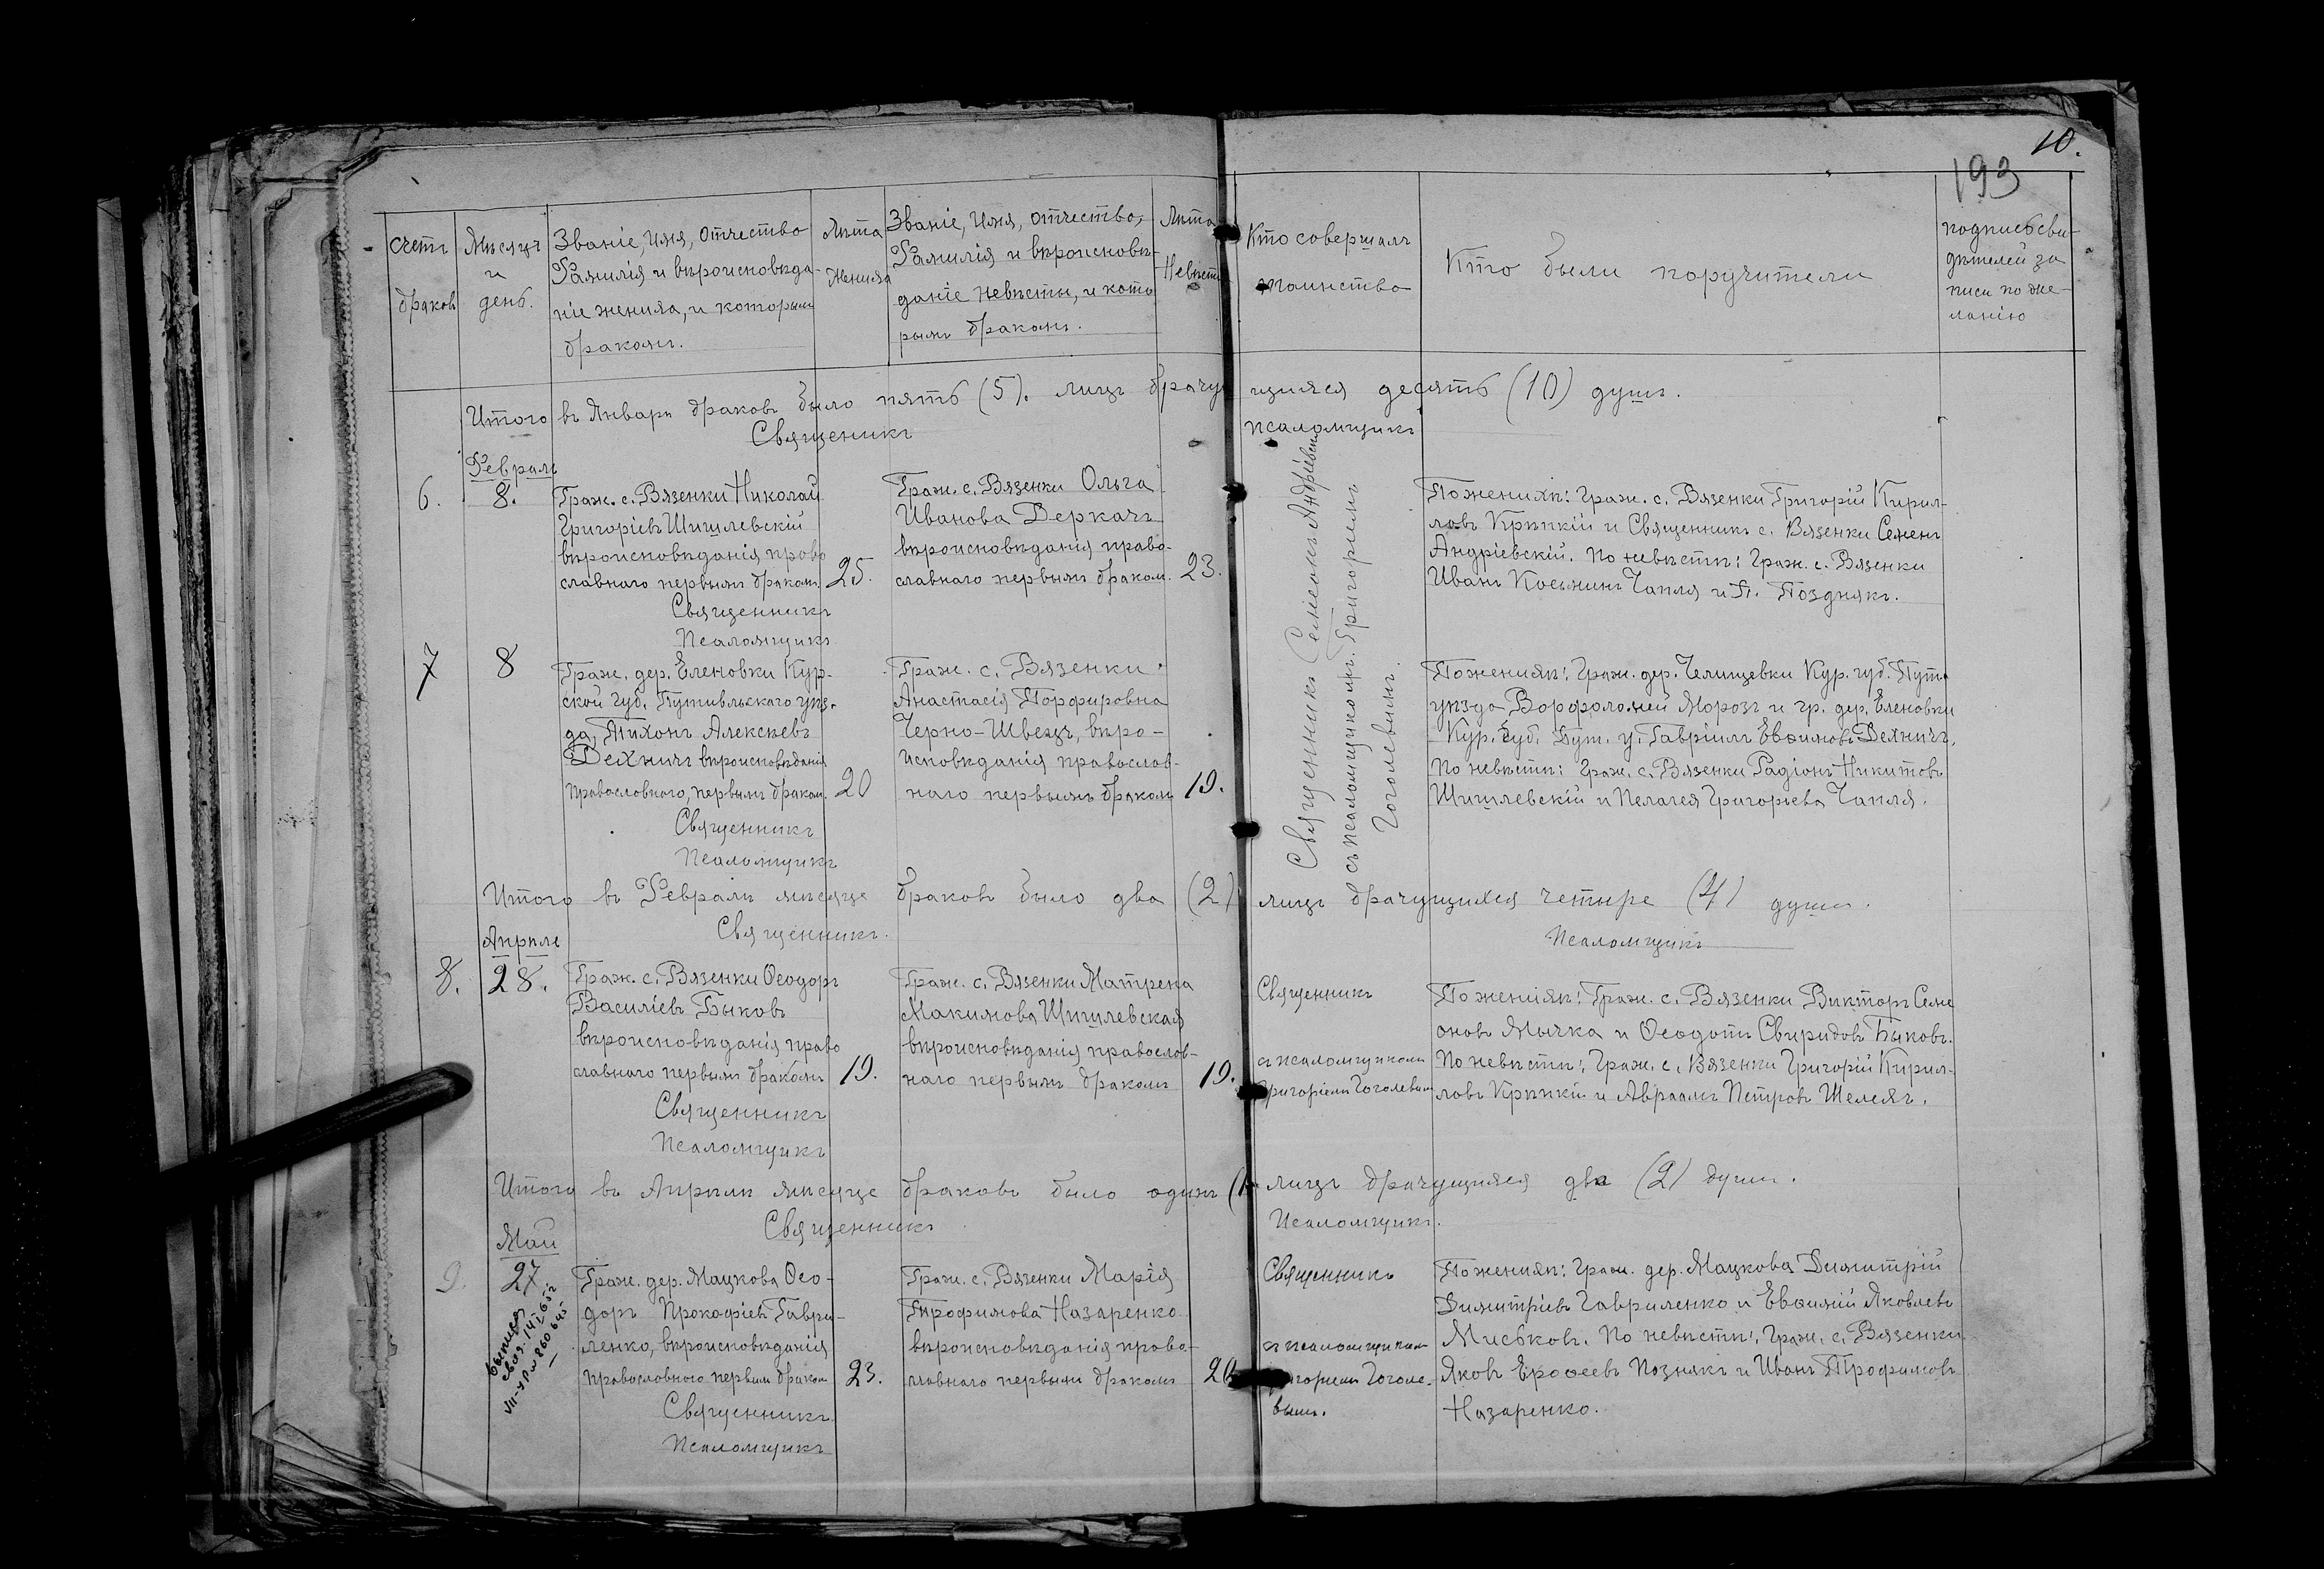 10.
193
Счетъ браковъ
Мѣсяцъ и день.
Званіе, имя, отчество
Фамилія и вѣроисповѣда-
ніе жениха, и которымъ
бракомъ.
Лѣта жениха
Званіе, имя, отчество,
Фамилія и вѣроисповѣ-
даніе невѣсты, и кото
рымъ бракомъ.
Лѣта Невѣсты
Кто совершалъ
таинство
Кто были поручители
подпись сви-
дѣтелей за
писи по же-
ланію
Итого въ Январѣ браковъ было пять (5). лицъ брачущихся десять (10) душъ.
Священикъ
псаломщикъ
Февраль
6.
8.
Граж. с. Вязенки Николай
Григоріевъ Шишлевскій
вѣроисповѣданія право
славнаго первымъ бракомъ.
25.
Священникъ
Псаломщикъ
Граж. с. Вязенки Ольга
Иванова Деркачъ
вѣроисповѣданія право-
славнаго первымъ браком.
23.
Священникъ Семеонъ Андріевскій
съ псаломщикомъ Григоріемъ
Гоголевымъ.
По женихѣ: Граж. с. Вязенки Григорій Кирил-
ловъ Крыпкій и Священникъ с. Вязенки Семенъ
Андріевскій. По невѣсти: Граж. с. Вязенки
Иванъ Косьминъ Чапля и П. Позднякъ.
7
8
Граж. дер. Еленовки Кур-
ской губ. Путивльскаго уѣз-
да, Тихонъ Алексѣевъ
Дехничъ вѣроисповѣданія
Православного, первымъ браком.
20
Священникъ
Псаломщикъ
Граж. с. Вязенки
Анастасія Порфировна
Черно-Швецъ, вѣро-
исповѣданія православ-
наго первымъ браком
19.
По женихѣ: Граж. дер. Челищевки Кур. губ. Пути
уѣзда Ворфоломей Морозъ и гр. дер. Еленовки
Кур. губ. Пут. у. Гавріилъ Евѳимовъ Дехничъ,
По невѣсти: Граж. с. Вязенки Радіонъ Никитовъ
Шишлевскій и Пелагея Григорьева Чапля.
Итого въ Февралѣ мѣсяце браковъ было два (2) лицъ брачущихся четыре (4) души.
Священникъ.
Псаломщикъ
Апрѣле
8.
28.
Граж. с. Вязенки Ѳеодоръ
Василіевъ Быковъ
вѣроисповѣданія право
славнаго первымъ бракомъ
19.
Священникъ
Псаломщикъ
Граж. с. Вязенки Матрена
Макимова Шишлевская
вѣроисповѣданія православ-
наго первымъ бракомъ
19.
Священникъ
съ псаломщикомъ
Григоріемъ Гоголевым
По женихѣ: Граж. с. Вязенки Викторъ Семе
оновъ Мычка и Ѳеодотъ Свиридовъ Быковъ.
По невѣсти: Граж. с. Вязенки Григорій Кирил-
ловъ Крыпкій и Авраамъ Петровъ Шелехъ.
Итого въ Апрѣли мѣсяце браковъ было одинъ (1 лицъ брачущихся два (2) души.
Священникъ
Псаломщикъ.
Май
9.
27.
Граж. дер. Мацкова Ѳео-
доръ Прокофіевъ Гаври-
ленко, вѣроисповѣданія
православного первым браком
23.
Священникъ.
Псаломщикъ
Граж. с. Вязенки Марія
Трофимова Назаренко
вѣроисповѣданія право-
славнаго первымъ бракомъ
20
Священникъ
съ псаломщиком
Григоріем Гоголе-
вым.
По женихѣ: Граж. дер. Мацкова Димитрій
Димитріевъ Гавриленко и Евѳимій Яковлевъ
Миськовъ. По невѣсти: Граж. с. Вязенки
Яковъ Ероѳеевъ Познякъ и Иванъ Трофимовъ
Назаренко.